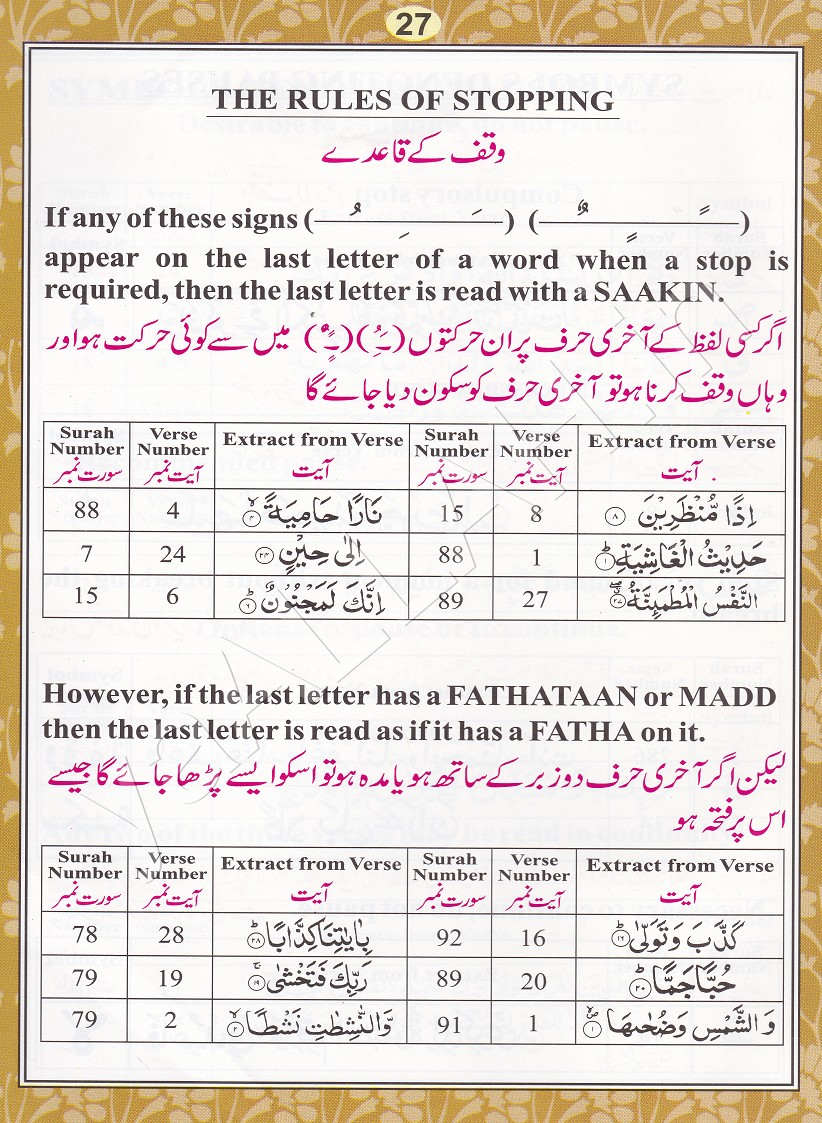 27
THE RULES OF STOPPING
وقف کے قاعدے
If any of these signs (ـَـِـُ) (ـًـٍـٌ)
appear on the last letter of a word when a stop is
required, then the last letter is read with a SAAKIN.
اگر کسی لفظ کے آخری حرف پر ان حرکتوں (ـَـِـُ) (ـًـٍـٌ) میں سے کوئی حرکت ہو اور
وہاں وقف کرنا ہو تو آخری حرف کو سکون دیا جائے گا
Surah Number سورت نمبر | Verse Number آیت نمبر | Extract from Verse آیت | Surah Number سورت نمبر | Verse Number آیت نمبر | Extract from Verse آیت
88 | 4 | نَارًا حَامِيَةً ۙ﴿۴﴾ | 15 | 8 | اِذًا مُّنْظَرِيْنَ ﴿۸﴾
7 | 24 | اِلٰى حِيْنٍ ﴿۲۴﴾ | 88 | 1 | حَدِيْثُ الْغَاشِيَةِ ؕ﴿۱﴾
15 | 6 | اِنَّكَ لَمَجْنُوْنٌ ؕ﴿۶﴾ | 89 | 27 | النَّفْسُ الْمُطْمَئِنَّةُ ﴿۲۷﴾
However, if the last letter has a FATHATAAN or MADD
then the last letter is read as if it has a FATHA on it.
لیکن اگر آخری حرف دو زبر کے ساتھ ہو یا مدہ ہو تو اسکو ایسے پڑھا جائے گا جیسے
اس پر فتحہ ہو
Surah Number سورت نمبر | Verse Number آیت نمبر | Extract from Verse آیت | Surah Number سورت نمبر | Verse Number آیت نمبر | Extract from Verse آیت
78 | 28 | بِاٰيٰتِنَا كِذَّابًا ؕ﴿۲۸﴾ | 92 | 16 | كَذَّبَ وَتَوَلّٰى ؕ﴿۱۶﴾
79 | 19 | رَبِّكَ فَتَخْشٰى ۚ﴿۱۹﴾ | 89 | 20 | حُبًّا جَمًّا ؕ﴿۲۰﴾
79 | 2 | وَّالنّٰشِطٰتِ نَشْطًا ۙ﴿۲﴾ | 91 | 1 | وَالشَّمْسِ وَضُحٰىهَا ﴿۱﴾